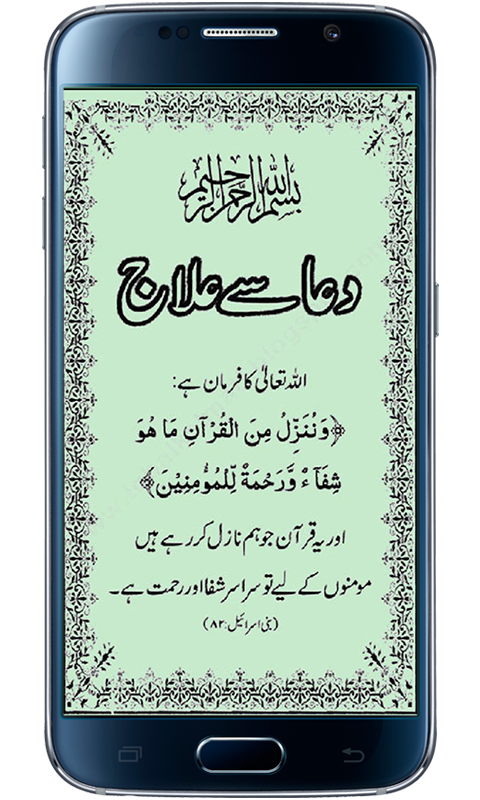 بسم الله الرحمن الرحيم
دعا سے علاج
اللہ تعالیٰ کا فرمان ہے:
﴿وَنُنَزِّلُ مِنَ الْقُرْآنِ مَا هُوَ
شِفَآءٌ وَّرَحْمَةٌ لِّلْمُؤْمِنِيْنَ﴾
اور یہ قرآن جو ہم نازل کر رہے ہیں
مومنوں کے لیے تو سراسر شفا اور رحمت ہے۔
(بنی اسرائیل:۸۲)